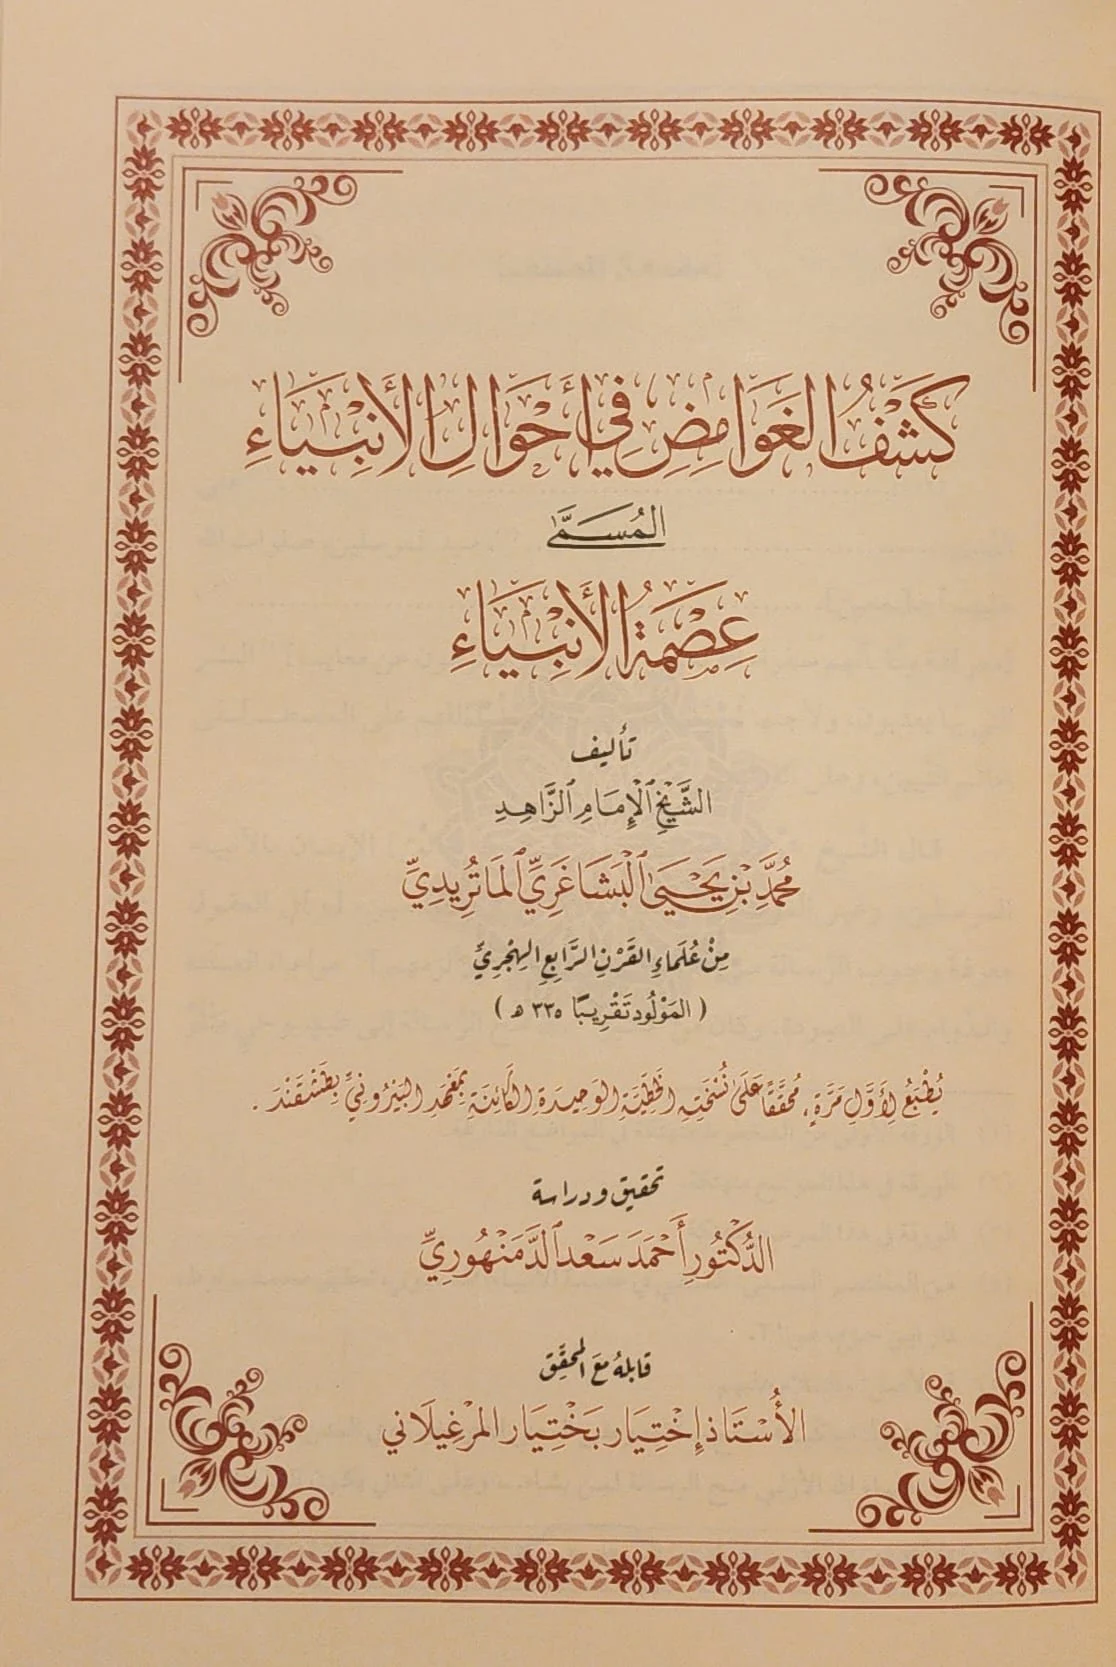 كَشْفُ الغَوَامِضِ فِي أَحْوَالِ الأَنْبِيَاءِ
المُسَمَّى
عِصْمَةُ الأَنْبِيَاءِ
تأليف
الشَّيْخِ الْإِمَامِ الزَّاهِدِ
مُحَمَّدِ بْنِ يَحْيَى الْبَشَاغَرِيِّ الْمَاتُرِيدِيِّ
مِنْ عُلَمَاءِ القَرْنِ الرَّابِعِ الهِجْرِيِّ
(المَوْلُود تَقْرِيبًا ٣٣٥ هـ)
يُطْبَعُ لِأَوَّلِ مَرَّةٍ، مُحَقَّقًا عَلَى نُسْخَتِهِ الخَطِّيَّةِ الوَحِيدَةِ الكَائِنَةِ بِمَعْهَدِ البَيْرُونِيِّ بِطَشْقَنْدَ.
تحقيق ودراسة
الدُّكْتُورِ أَحْمَدَ سَعْد الدَّمَنْهُورِيِّ
قابله مَعَ المحَقِّق
الأُسْتَاذ إِخْتِيَار بَخْتِيَار المَرْغِيلَانِي